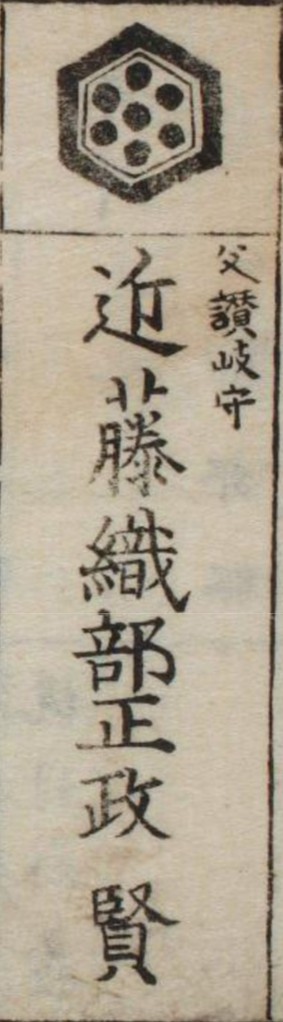 父讃岐守
近藤織部正政賢